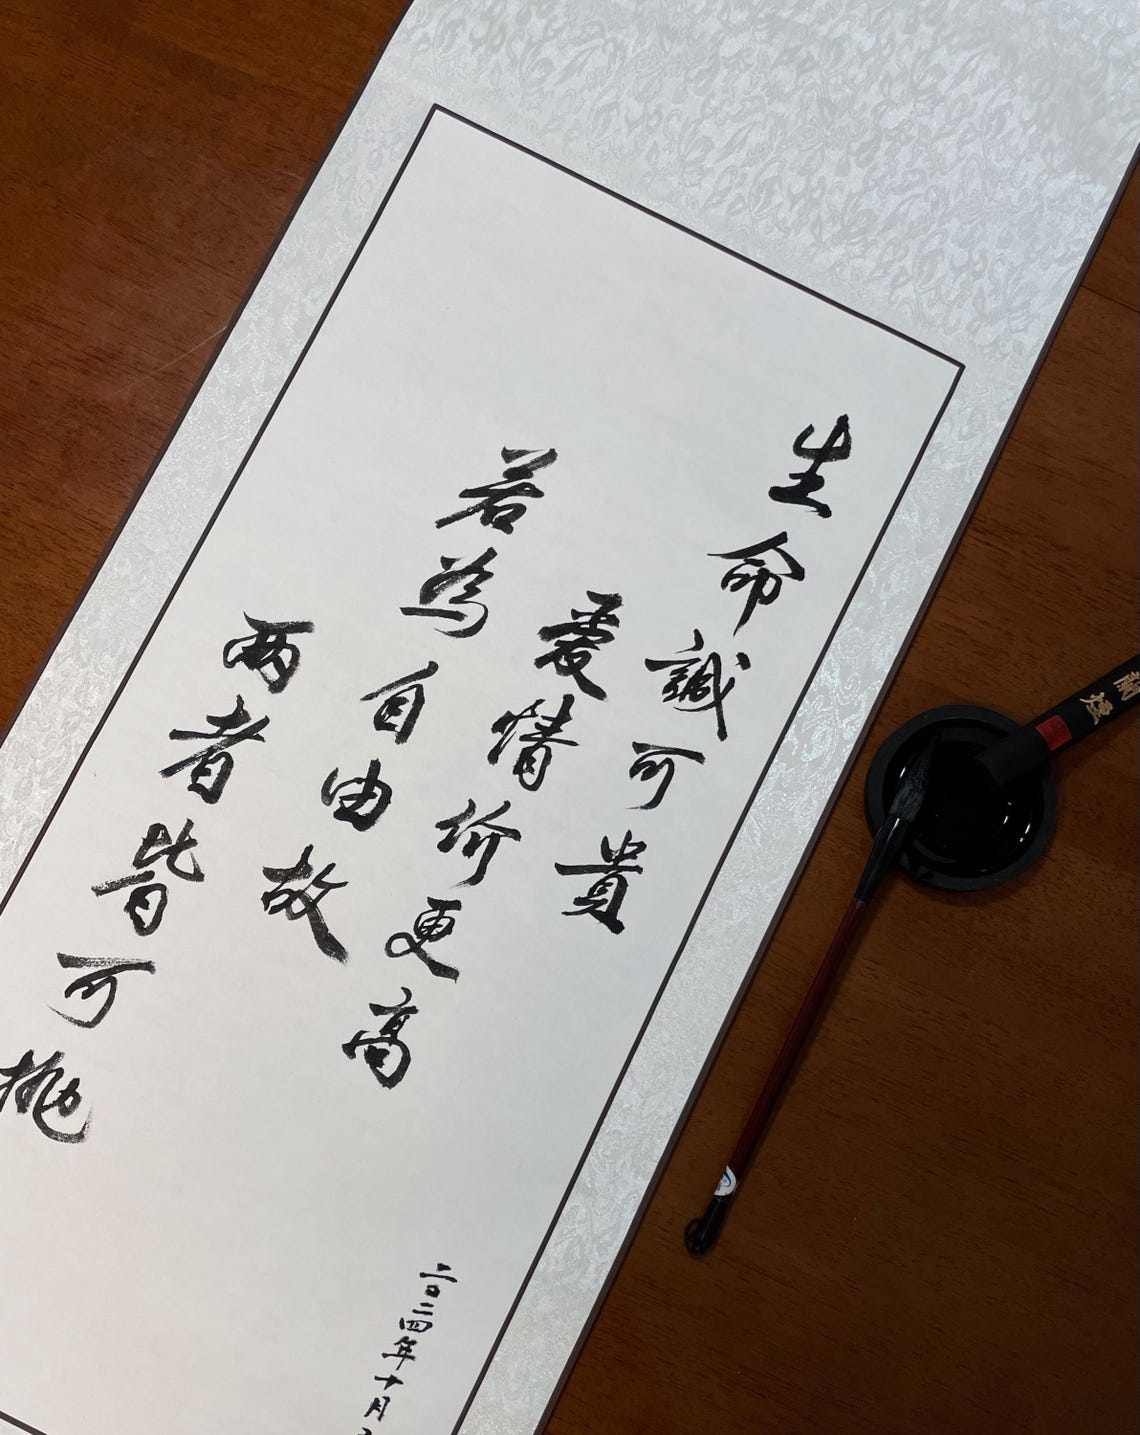 生命誠可貴
愛情价更高
若為自由故
两者皆可抛
二〇二四年十月